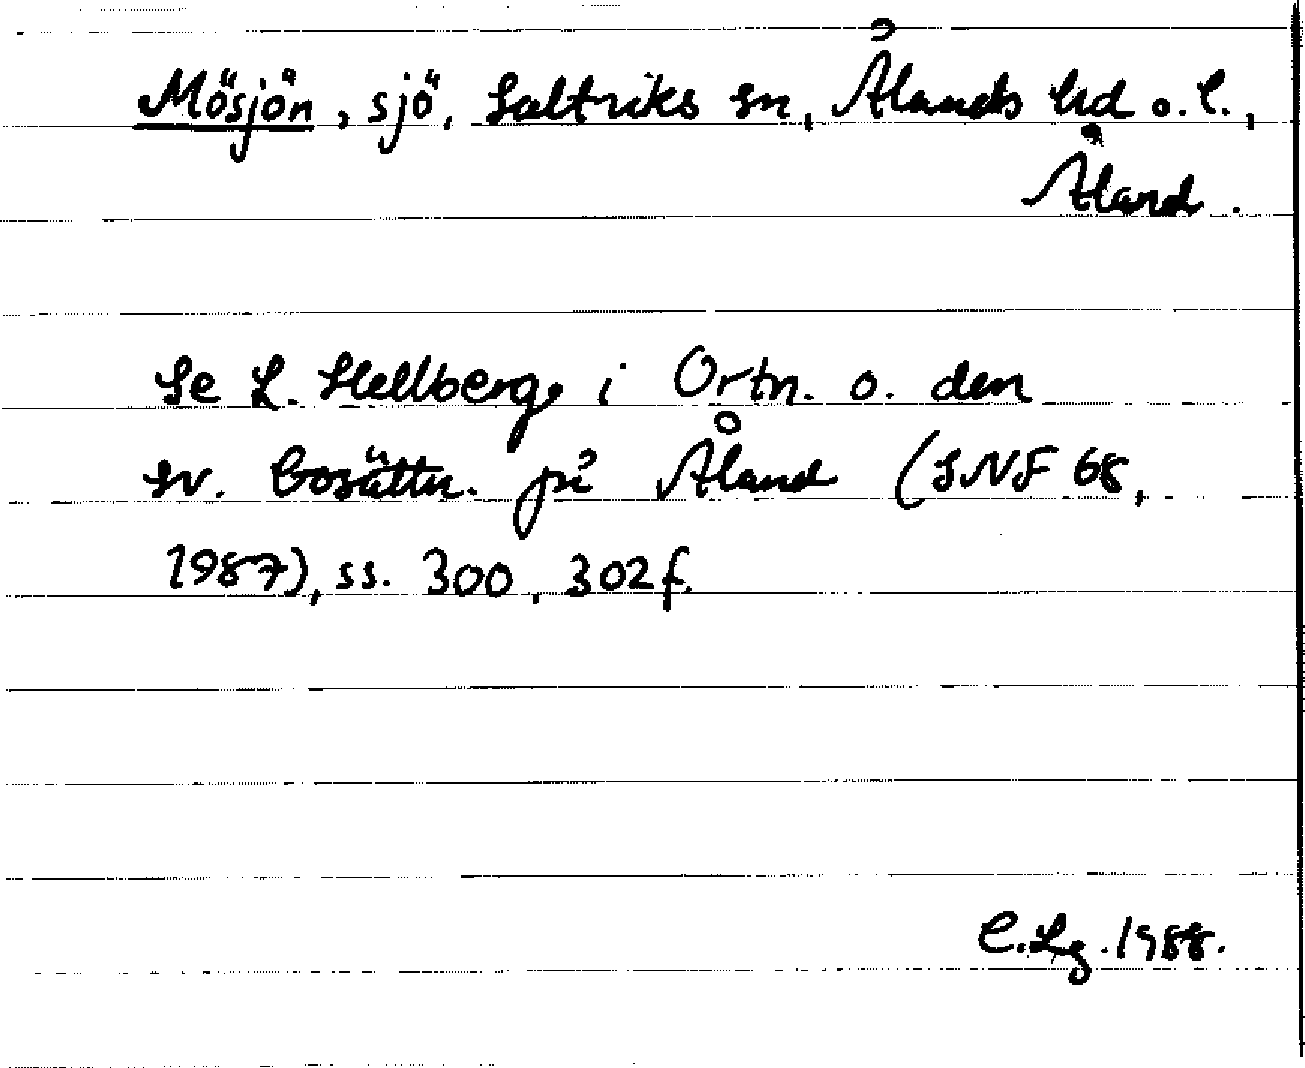 Mösjön, sjö, Saltviks sn, Ålands hd o. l.,
Åland.
Se L. Hellberg i Ortn. o. den
sv. bosättn. på Åland (SNF 68,
1987), ss. 300, 302f.
C. Lg. 1988.